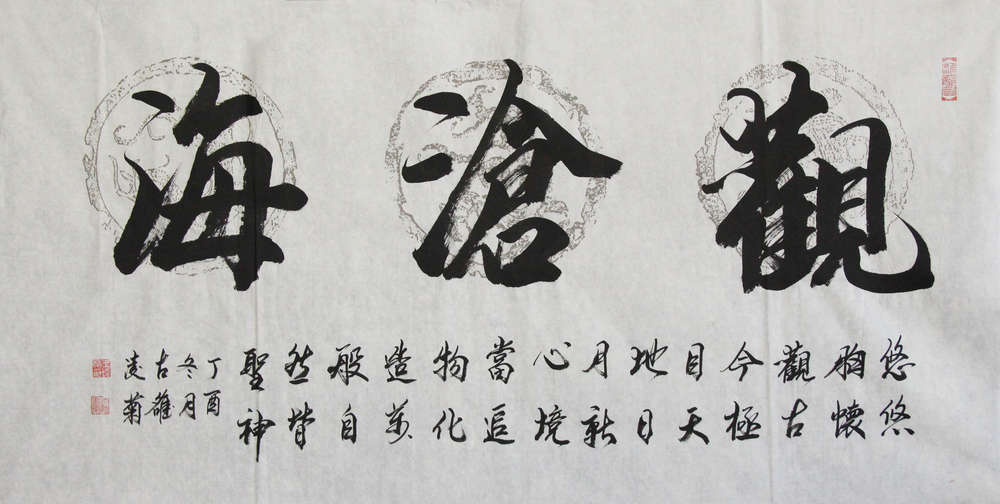 觀滄海
悠悠
胸懷
觀古
今極
目天
地日
月新
心境
當追
物化
造萬
般自
然皆
聖神
丁酉
冬月
古雒
菊